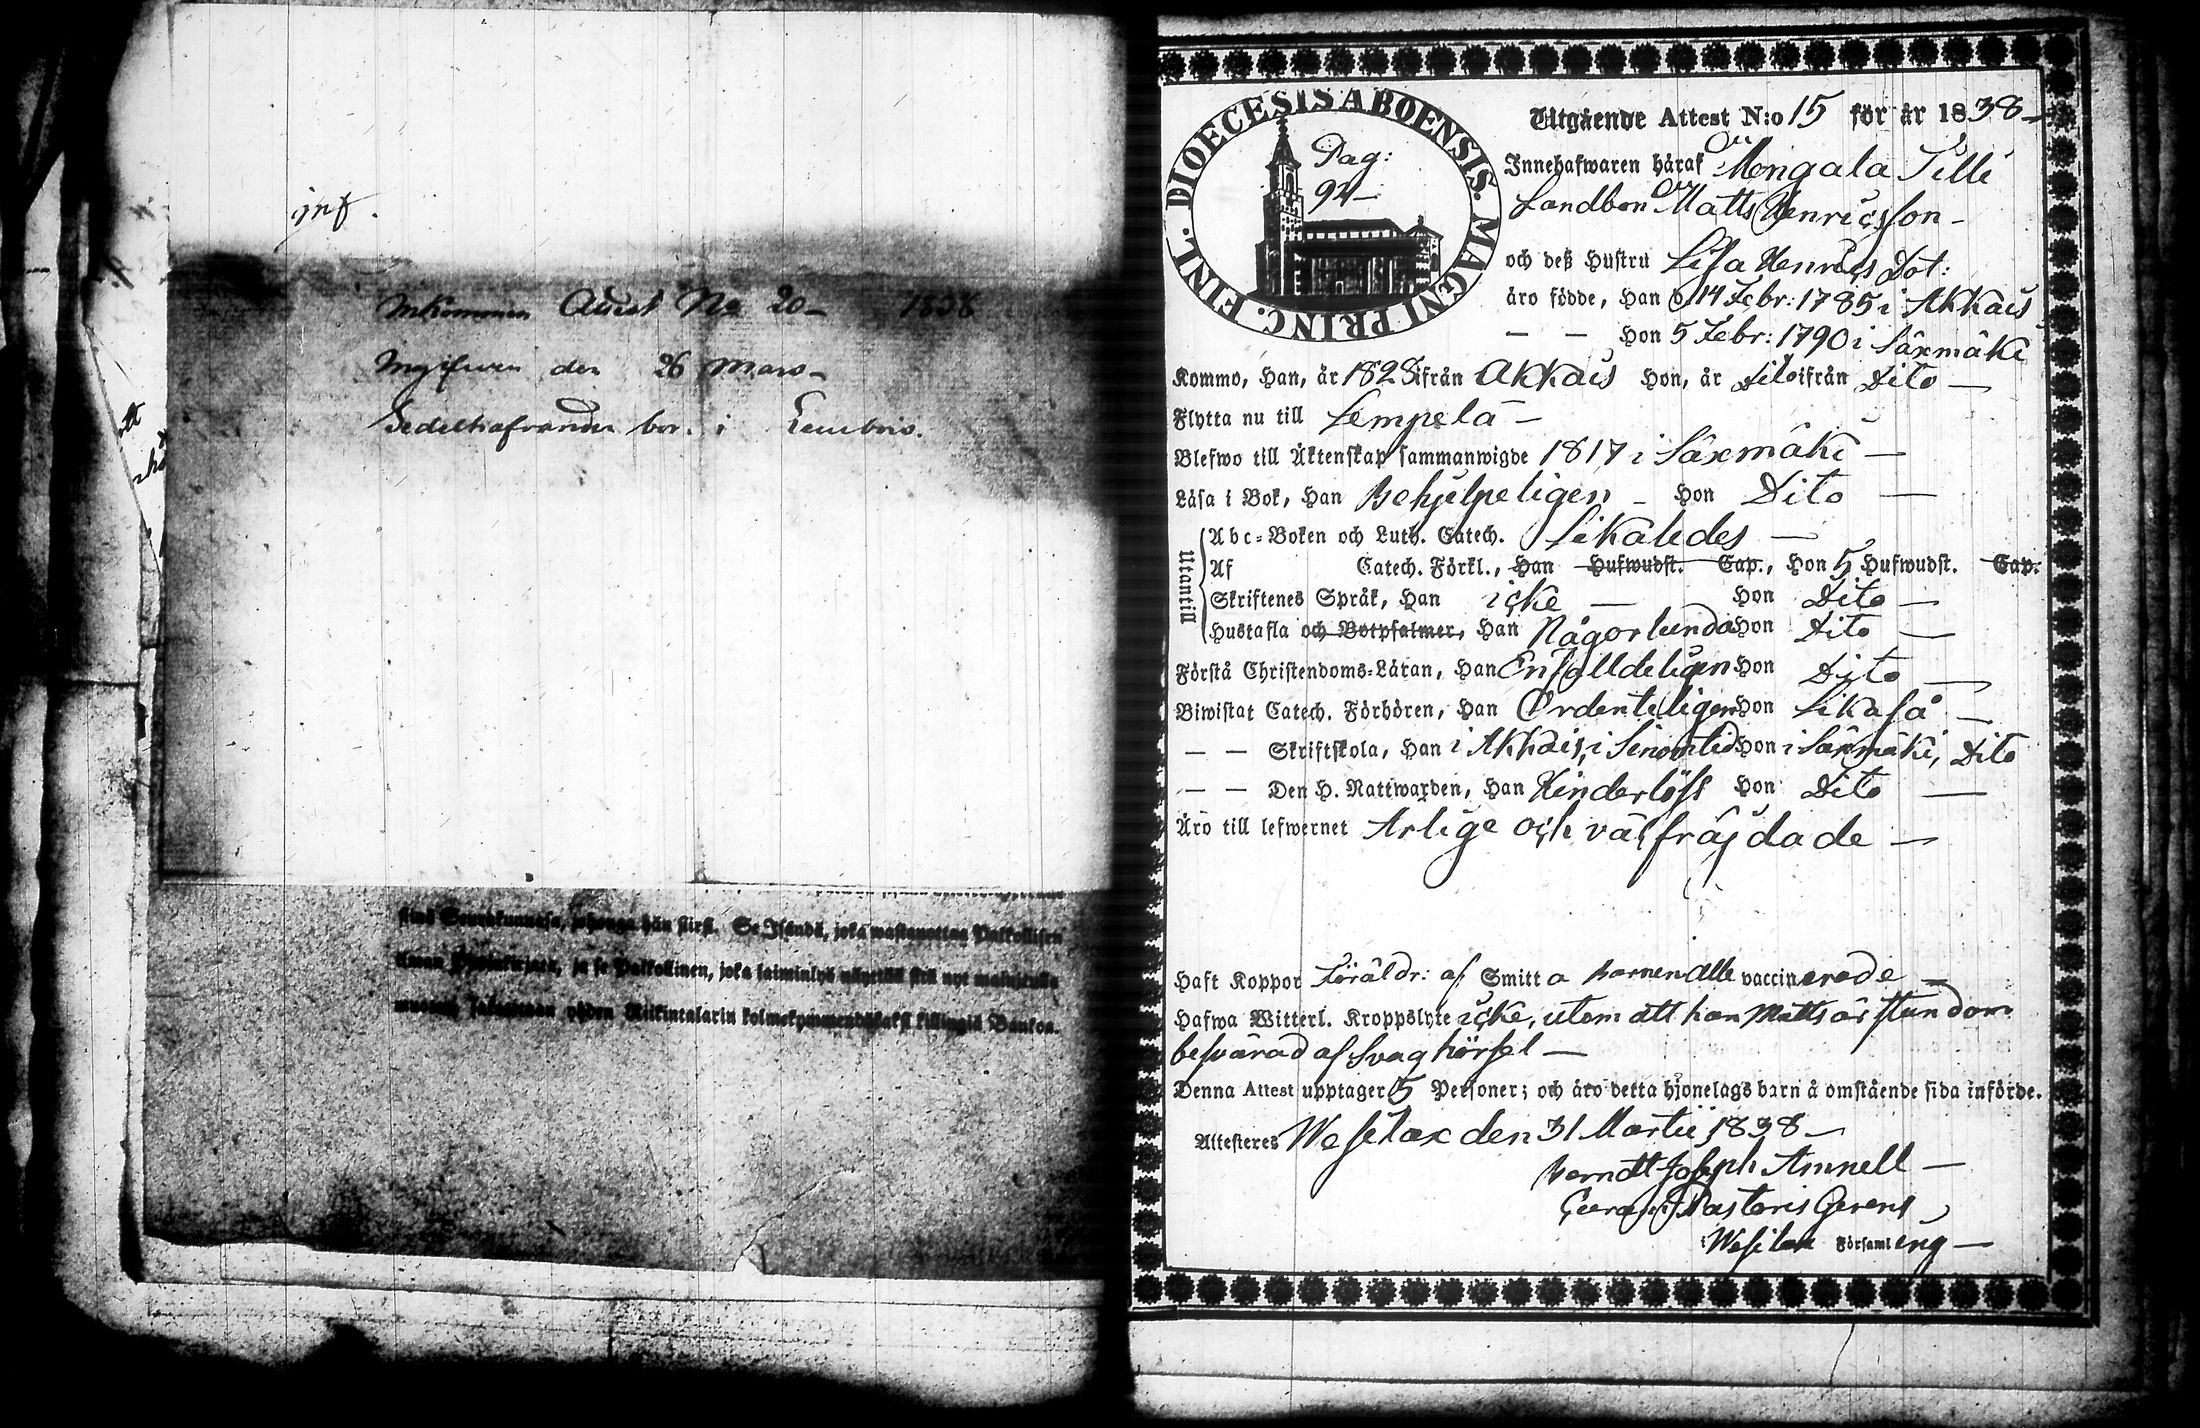 inf.
Inkommen Attest No 20 – 1838
Ingifven den 26 Mars –
Sedelhafvanden bor i
stinä Seurakunnasa, johonga hän siirsi. Se Isändä, joka wastanottaa Palkollisen
ilman Papinkirjata, ja se Palkollinen, joka laiminlyö näyttää sitä nyt mainitulla
muotoa, wetäwät yhden Riikintalarin kolmekymmendäkaksi killingiä Bankoa.
DIOECESIS ABOENSIS. MAGNI PRINC. FINL.
Pag:
92 –
Utgående Attest N:o 15 för år 1838 –
Innehafwaren häraf Mongala Sille
Landbon Matts Henricsson –
och deß Hustru Lisa Henrics Dot:
äro födde, Han d 14 Febr: 1785 i Akkais
— — Hon 5 Febr: 1790 i Säxmäki
Kommo, Han, år 1828 ifrån Akkais Hon, år Dito ifrån Dito —
Flytta nu till Lempelä –
Blefwo till Äktenskap sammanwigde 1817 i Säxmäki —
Läsa i Bok, Han Behjelpeligen – Hon Dito —
Utantill
Abc-Boken och Luth. Catech. Likaledes —
Af Catech. Förkl., Han Hufwudst. Cap., Hon 5 Hufwudst. Cap.
Skriftenes Språk, Han icke — Hon Dito —
Hustafla och Botpsalmer, Han Någorlunda Hon Dito —
Förstå Christendoms-Läran, Han Enfalldeligen Hon Dito —
Biwistat Catech. Förhören, Han Ordenteligen Hon Likaså —
— — Skriftskola, Han i Akkais, i Sinom tid Hon i Säxmäki, Dito
— — Den H. Nattwarden, Han Hinderlöst Hon Dito —
Äro till lefwernet Ärlige och välfräjdade —
Haft Koppor Föräldr: af Smitta barnen alle vaccinerade —
Hafwa Witterl. Kroppslyte icke, utom att han Matts är stundom
besvärad af Svag hörsel —
Denna Attest upptager 5 Personer; och äro detta hjonelags barn å omstående sida införde.
Attesteras Wesilax den 31 Martii 1838 —
Berndt Joseph Amnell —
Curam Pastoris Gerens
i Wesilax Församling —